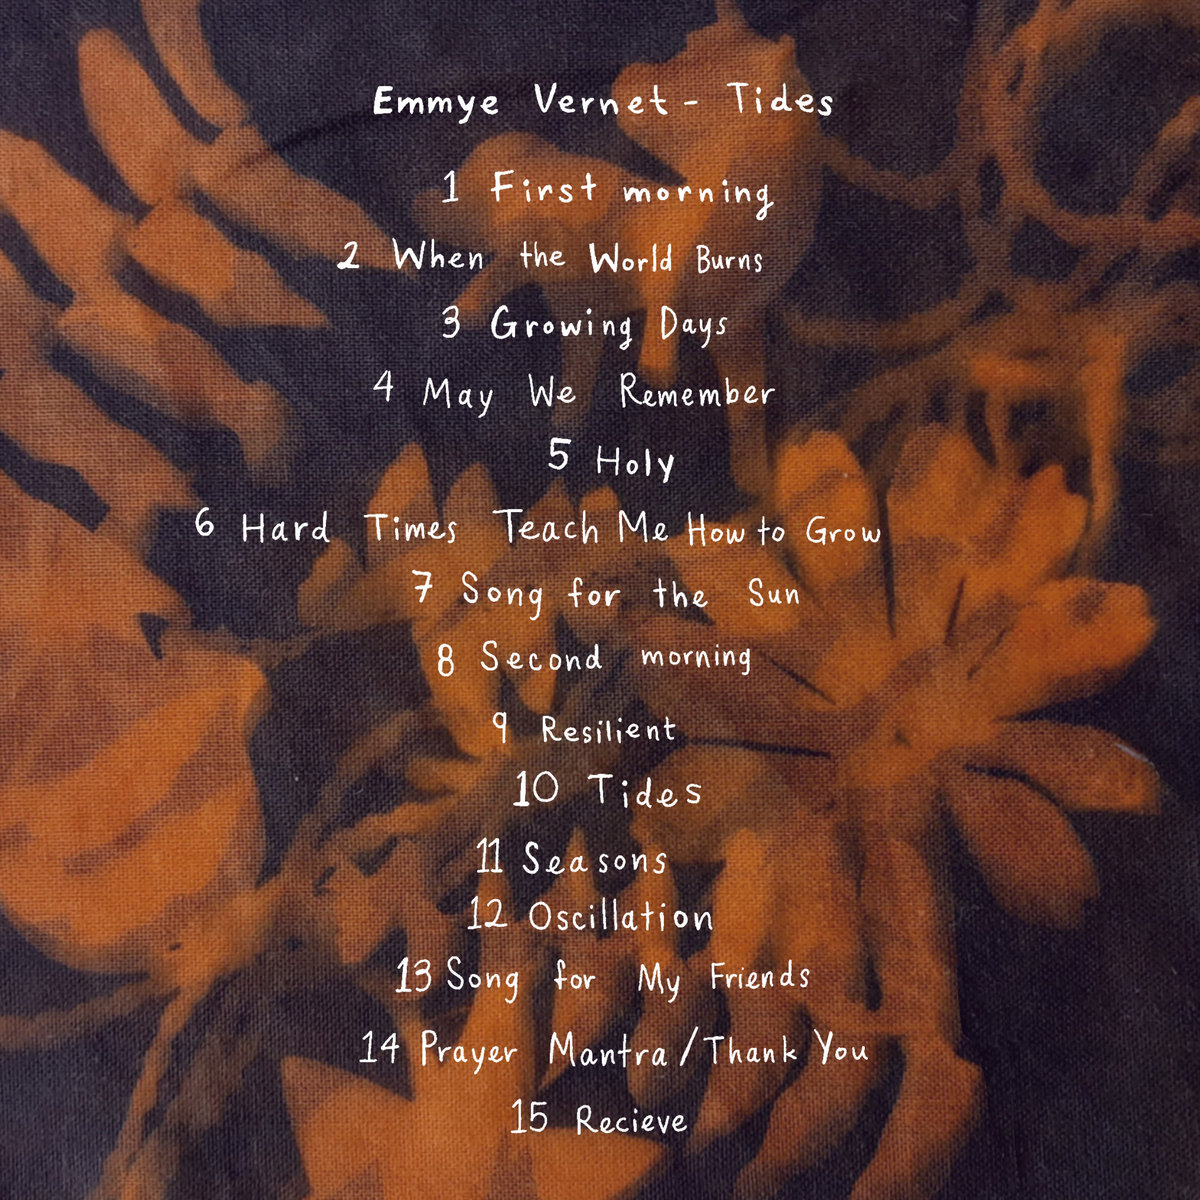 Emmye Vernet - Tides
1 First morning
2 When the World Burns
3 Growing Days
4 May We Remember
5 Holy
6 Hard Times Teach Me How to Grow
7 Song for the Sun
8 Second morning
9 Resilient
10 Tides
11 Seasons
12 Oscillation
13 Song for My Friends
14 Prayer Mantra/Thank You
15 Recieve